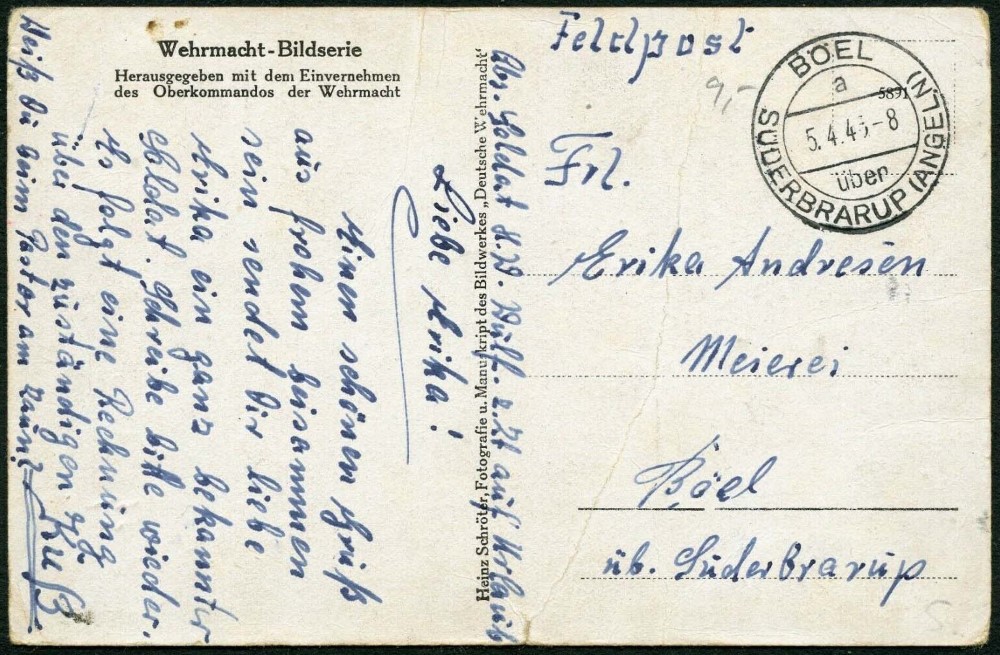 Wehrmacht-Bildserie
Herausgegeben mit dem Einvernehmen
des Oberkommandos der Wehrmacht
Liebe Erika!
Einen schönen Gruß
aus frohem beisammen
sein sendet dir liebe
Erika ein ganz bekannter
Soldat. Schreibe bitte wieder.
Es folgt eine Rechnung
über den zuständigen
Weiß du beim Pastor am Zaun?
Kuß
Heinz Schröter, Fotografie u. Manuskript des Bildwerkes „Deutsche Wehrmacht"
Abs. Soldat H. z. Zt auf Urlaub
Feldpost
9,-
BÖEL
a
5891
5.4.43-8
über
SÜDERBRARUP (ANGELN)
Frl.
Erika Andresen
Meierei
Böel
üb. Süderbrarup